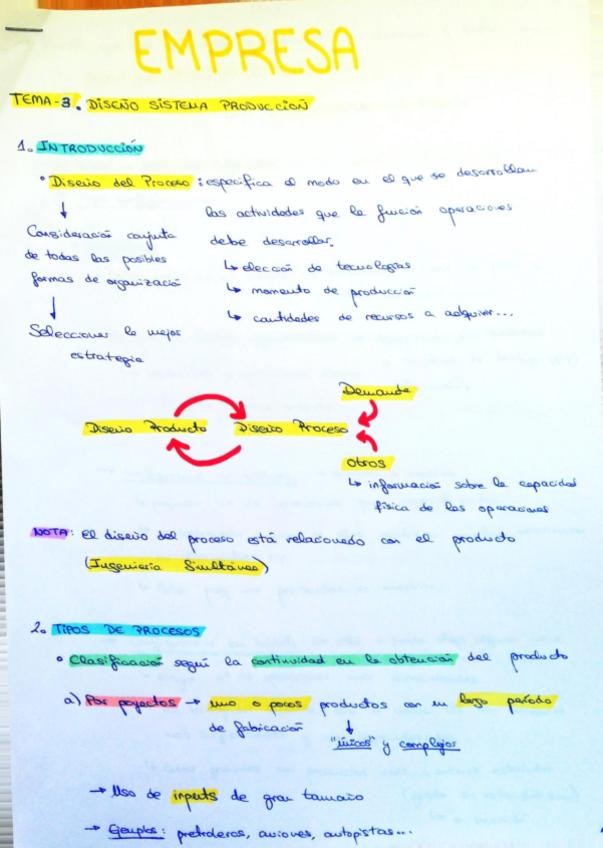 EMPRESA
TEMA-3. DISEÑO SISTEMA PRODUCCIÓN
1. INTRODUCCIÓN
• Diseño del Proceso: especifica el modo en el que se desarrollan
las actividades que la función operaciones
debe desarrollar.
↳ elección de tecnologías
↳ momento de producción
↳ cantidades de recursos a adquirir...
↓
Consideración conjunta
de todas las posibles
formas de organización
↓
Seleccionar la mejor
estrategia
Demanda
Diseño Producto Diseño Proceso
Otros
↳ información sobre la capacidad
física de las operaciones
NOTA: el diseño del proceso está relacionado con el producto
(Ingeniería Simultánea)
2. TIPOS DE PROCESOS
• Clasificación según la continuidad en la obtención del producto
a) Por poyectos → uno o pocos productos con un largo período
de fabricación ↓
"únicos" y complejos
→ Uso de inputs de gran tamaño
→ Ejemplos: petroleros, aviones, autopistas...